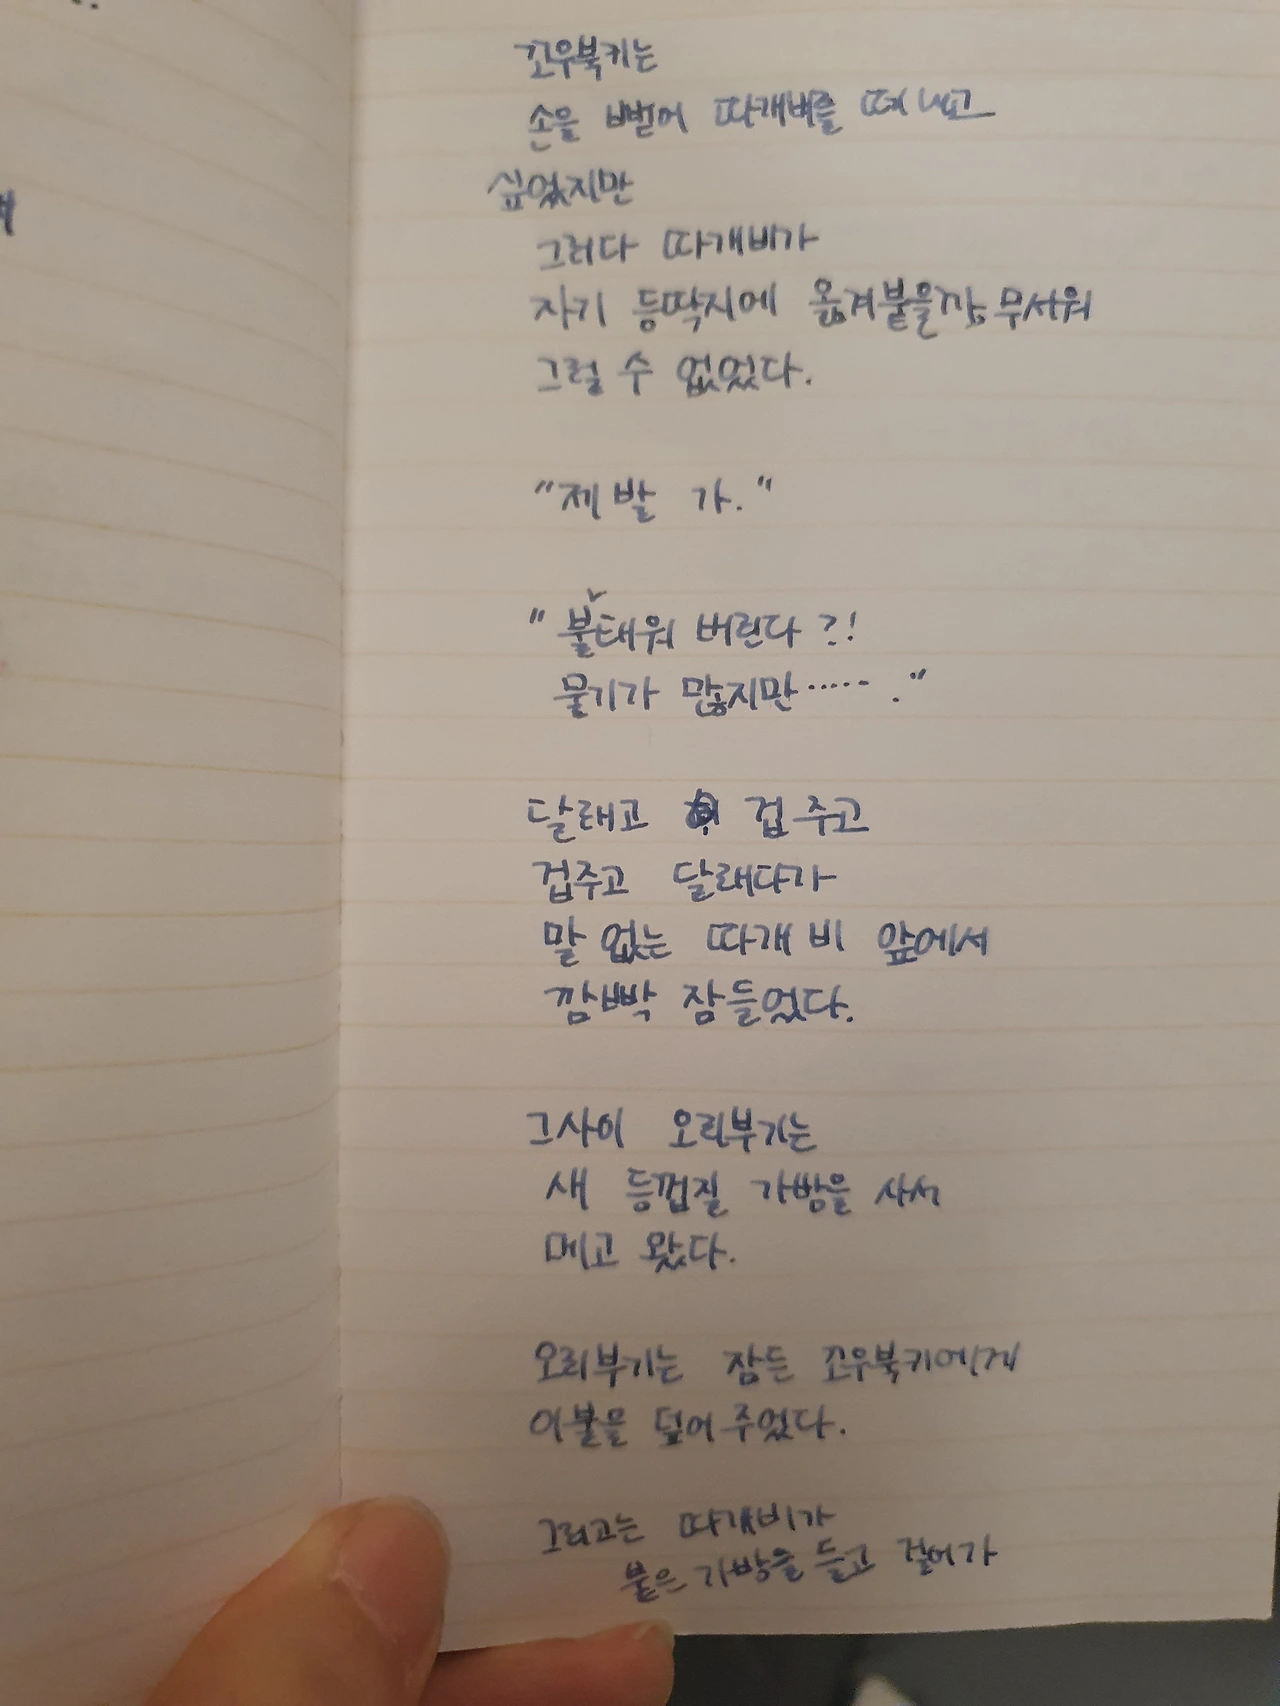 꼬우북키는
손을 뻗어 따개비를 떼내고
싶었지만
그러다 따개비가
자기 등딱지에 옮겨붙을까 무서워
그럴 수 없었다.
"제발 가."
"불태워 버린다?!
물기가 많지만······."
달래고 겁주고
겁주고 달래다가
말 없는 따개비 앞에서
깜빡 잠들었다.
그사이 오리부기는
새 등껍질 가방을 사서
메고 왔다.
오리부기는 잠든 꼬우북키에게
이불을 덮어 주었다.
그리고는 따개비가
붙은 가방을 들고 걸어가